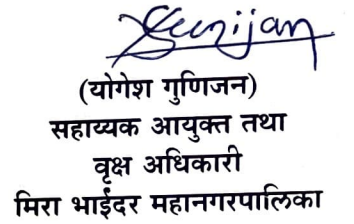 Gunijan
(योगेश गुणिजन)
सहाय्यक आयुक्त तथा
वृक्ष अधिकारी
मिरा भाईंदर महानगरपालिका